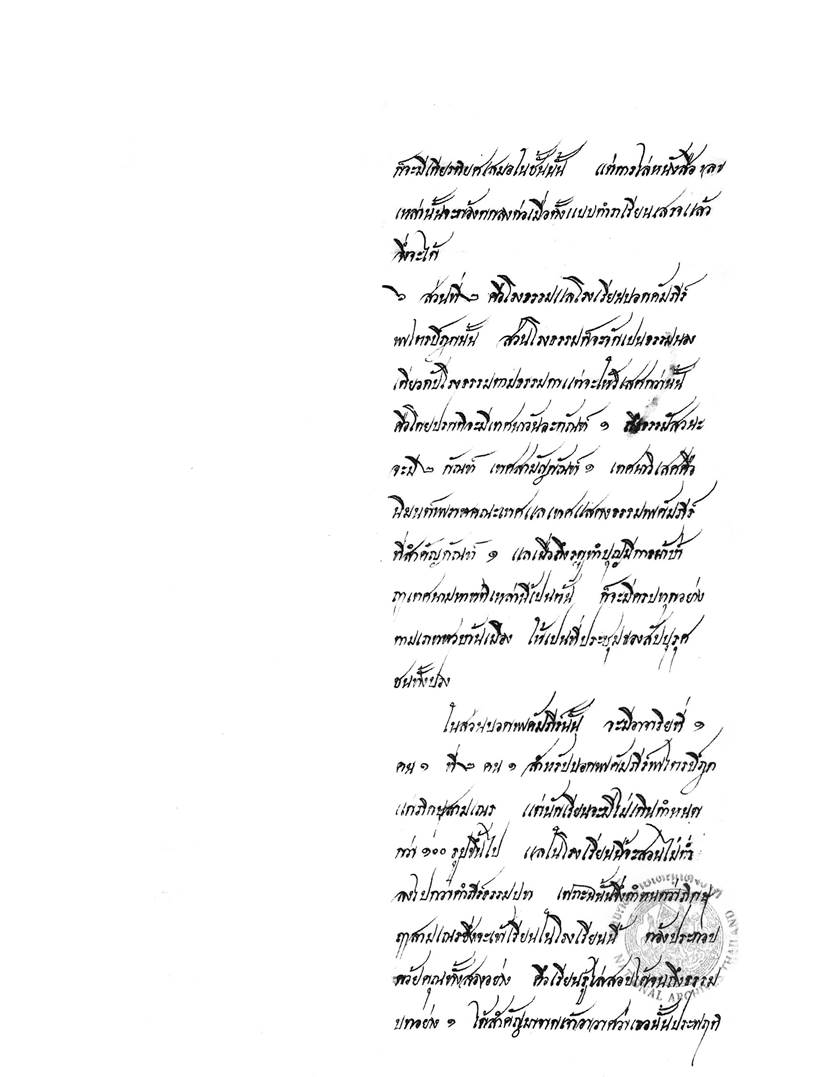 ก็จะมีเกียรติยศเสมอในชั้นนั้น แต่การไล่หนังสือ
เหล่านั้นจะต้องตกลงต่อเมื่อตั้งแบบตำราเรียนเสจแล้ว
จึ่งจะได้
๖ ส่วนที่ ๒ คือโรงธรรมแลโรงเรียนบอกคัมภีร์
พไตรปิฎกนั้น ส่วนโรงธรรมก็จะจัดเปนธรรมนอง
เดียวกับโรงธรรมตามธรรมดาแต่จะให้วิเสศกว่านั้น
คือโดยปรกติจะมีเทศนาวันละกัณฑ์ ๑ ถึงธรรมัสวนะ
จะมี ๒ กัณฑ์ เทศสามัญกัณฑ์ ๑ เทศนาวิเสศคือ
นิมนต์พราชคณะเทศแลเทศแสดงธรรมพคัมภีร์
ที่สำคัญกัณฑ์ ๑ แลเมื่อถึงฤดูทำบุญมีการผ้าป่า
ฤาเทศนามหาชาติเหล่านี้เปนต้น ก็จะมีครบทุกอย่าง
ตามเภทพวกบ้านเมือง ให้เปนที่ประชุมของสัปบุรุศ
ชนทั้งปวง
ในส่วนบอกพคัมภีร์นั้น จะมีอาจาริยที่ ๑
คน ๑ ที่ ๒ คน ๑ สำหรับบอกพคัมภีร์พไตรปิฎก
แก่ภิกษุสามเณร แต่นักเรียนจะมีไม่เกินกำหนด
กว่า ๑๐๐ รูปขึ้นไป แลในโรงเรียนนี้จะสอนไม่ต่ำ
ลงไปกว่าคำภีร์ธรรมบท เพราะฉนั้นจึ่งกำหนดว่าภิกษุ
ฤาสามเณรซึ่งจะเข้าเรียนในโรงเรียนนี้ ต้องประกอบ
ด้วยคุณทั้งสองอย่าง คือเรียนรู้ไล่สอบได้จนถึงธรรม
บทอย่าง ๑ ได้สำคัญมาจากเจ้าอาวาศว่าเธอนั้นประพฤติ
NATIONAL ARCHIVES THAILAND